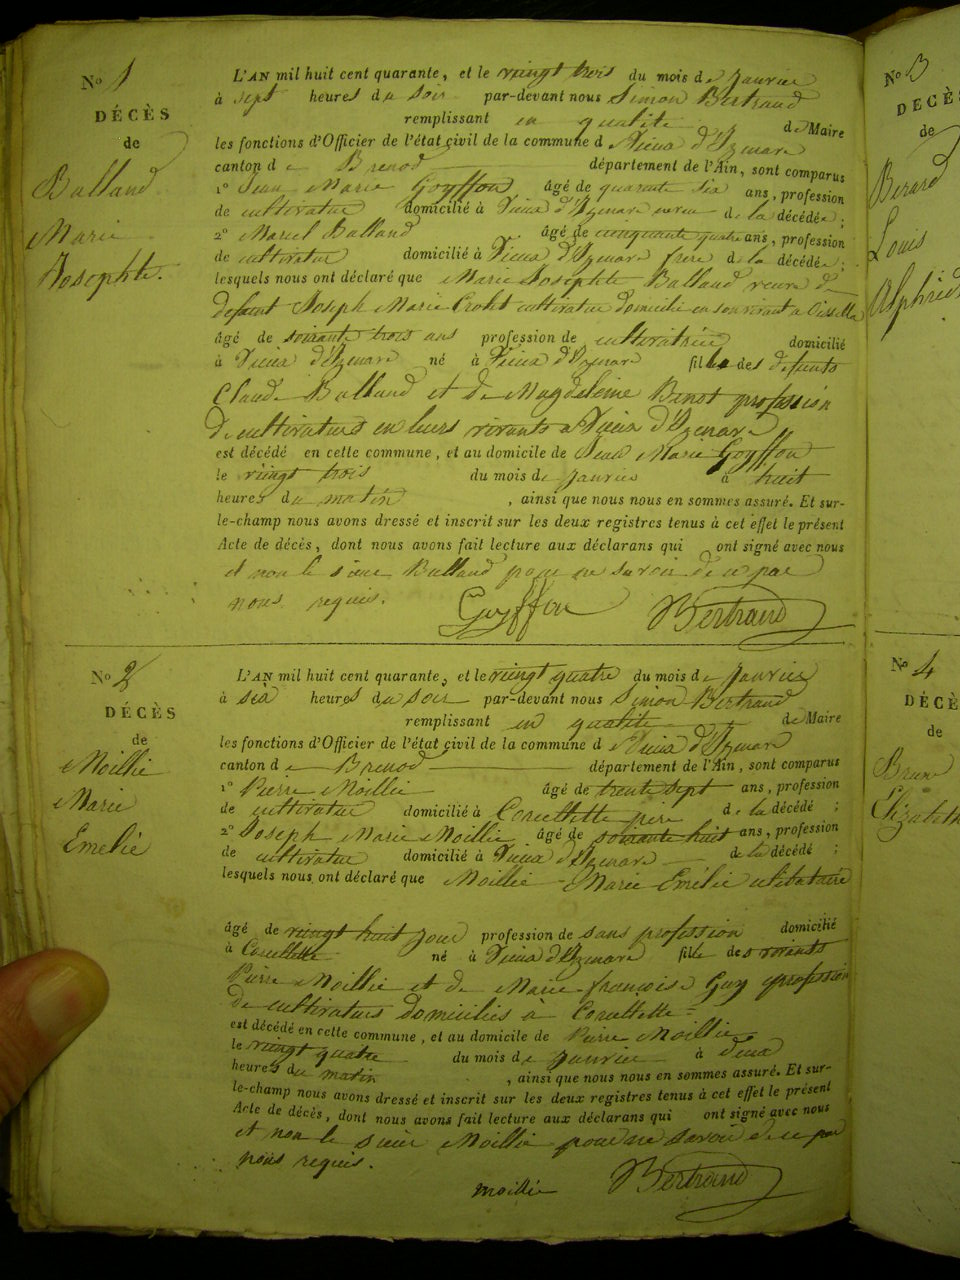 N° 1
DÉCÈS
de
Balland
Marie
Josephte.
L'AN mil huit cent quarante, et le vingt trois du mois de Janvier
à sept heures du soir par-devant nous Simon Bertrand
remplissant en qualité de Maire
les fonctions d'Officier de l'état civil de la commune d Vieux d'Izenave
canton de Brenod département de l'Ain, sont comparus
1° Jean Marie Goyffon âgé de quarante six ans, profession
de cultivateur domicilié à Vieux d'Izenave neveu de la décédée;
2° Marcel Balland âgé de cinquante quatre ans, profession
de cultivateur domicilié à Vieux d'Izenave frere de la décédée;
lesquels nous ont déclaré que Marie Josephte Balland veuve de
defunt Joseph Marie Crolet cultivateur domicilié en son vivant a
âgé de soixante trois ans profession de cultivatrice domicilié
à Vieux d'Izenave né à Vieux d'Izenave fille des defunts
Claude Balland et de Magdeleine Benot profession
de cultivateurs en leurs vivants a Vieux d'Izenave
est décédé en cette commune, et au domicile de Jean Marie Goyffon
le vingt trois du mois de Janvier à huit
heures du matin, ainsi que nous nous en sommes assuré. Et sur-
le-champ nous avons dressé et inscrit sur les deux registres tenus à cet effet le présent
Acte de décès, dont nous avons fait lecture aux déclarans qui ont signé avec nous
et non le sieur Balland pour ne savoir de ce par
nous requis.
Goyffon Bertrand
N° 2
DÉCÈS
de
Moillie
Marie
Emelie
L'AN mil huit cent quarante, et le vingt quatre du mois de Janvier
à six heures du soir par-devant nous Simon Bertrand
remplissant en qualité de Maire
les fonctions d'Officier de l'état civil de la commune d Vieux d'Izenave
canton de Brenod département de l'Ain, sont comparus
1° Pierre Moillie âgé de trente sept ans, profession
de cultivateur domicilié à Corcellette père de la décédé;
2° Joseph Marie Moillie âgé de soixante huit ans, profession
de cultivateur domicilié à Vieux d'Izenave de la décédé;
lesquels nous ont déclaré que Moillie Marie Emélie célibataire
âgé de vingt huit jour profession de sans profession domicilié
à Corcellette né à Vieux d'Izenave fille des vivants
Pierre Moillie et de Marie françoise Guy profession
de cultivateurs domiciliés à Corcellette
est décédé en cette commune, et au domicile de Pierre Moillie
le vingt quatre du mois de Janvier à deux
heures du matin, ainsi que nous nous en sommes assuré. Et sur-
le-champ nous avons dressé et inscrit sur les deux registres tenus à cet effet le présent
Acte de décès, dont nous avons fait lecture aux déclarans qui ont signé avec nous
et non le sieur Moillie pour ne savoir de ce par
nous requis.
moillie Bertrand
N° 3
DÉCÈS
de
Berard
Louis
N° 4
DÉCÈ
de
Elizabeth